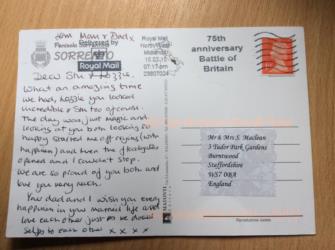 from Mam & Dad x
Delivered by
Royal Mail
Penisola Sorrentina
SORRENTO
Royal Mail
North West
Midlands
15.03.15
07:17 pm
29807024
75th
anniversary
Battle of
Britain
Dear Stu & Lozzie.
What an amazing time
we had, Lozzie you looked
incredible & Stu too of course.
The day was just magic and
looking at you both looking so
happy started me off crying (with
happiness) and then the floodgates
opened and I couldn't stop.
We are so proud of you both and
love you very much.
Your dad and I wish you every
happiness in your married life and
love each other just be kind
selfs to each other x x x x
Mr & Mrs S Maclean
3 Tudor Park Gardens
Burntwood
Staffordshire
WS7 0BA
England